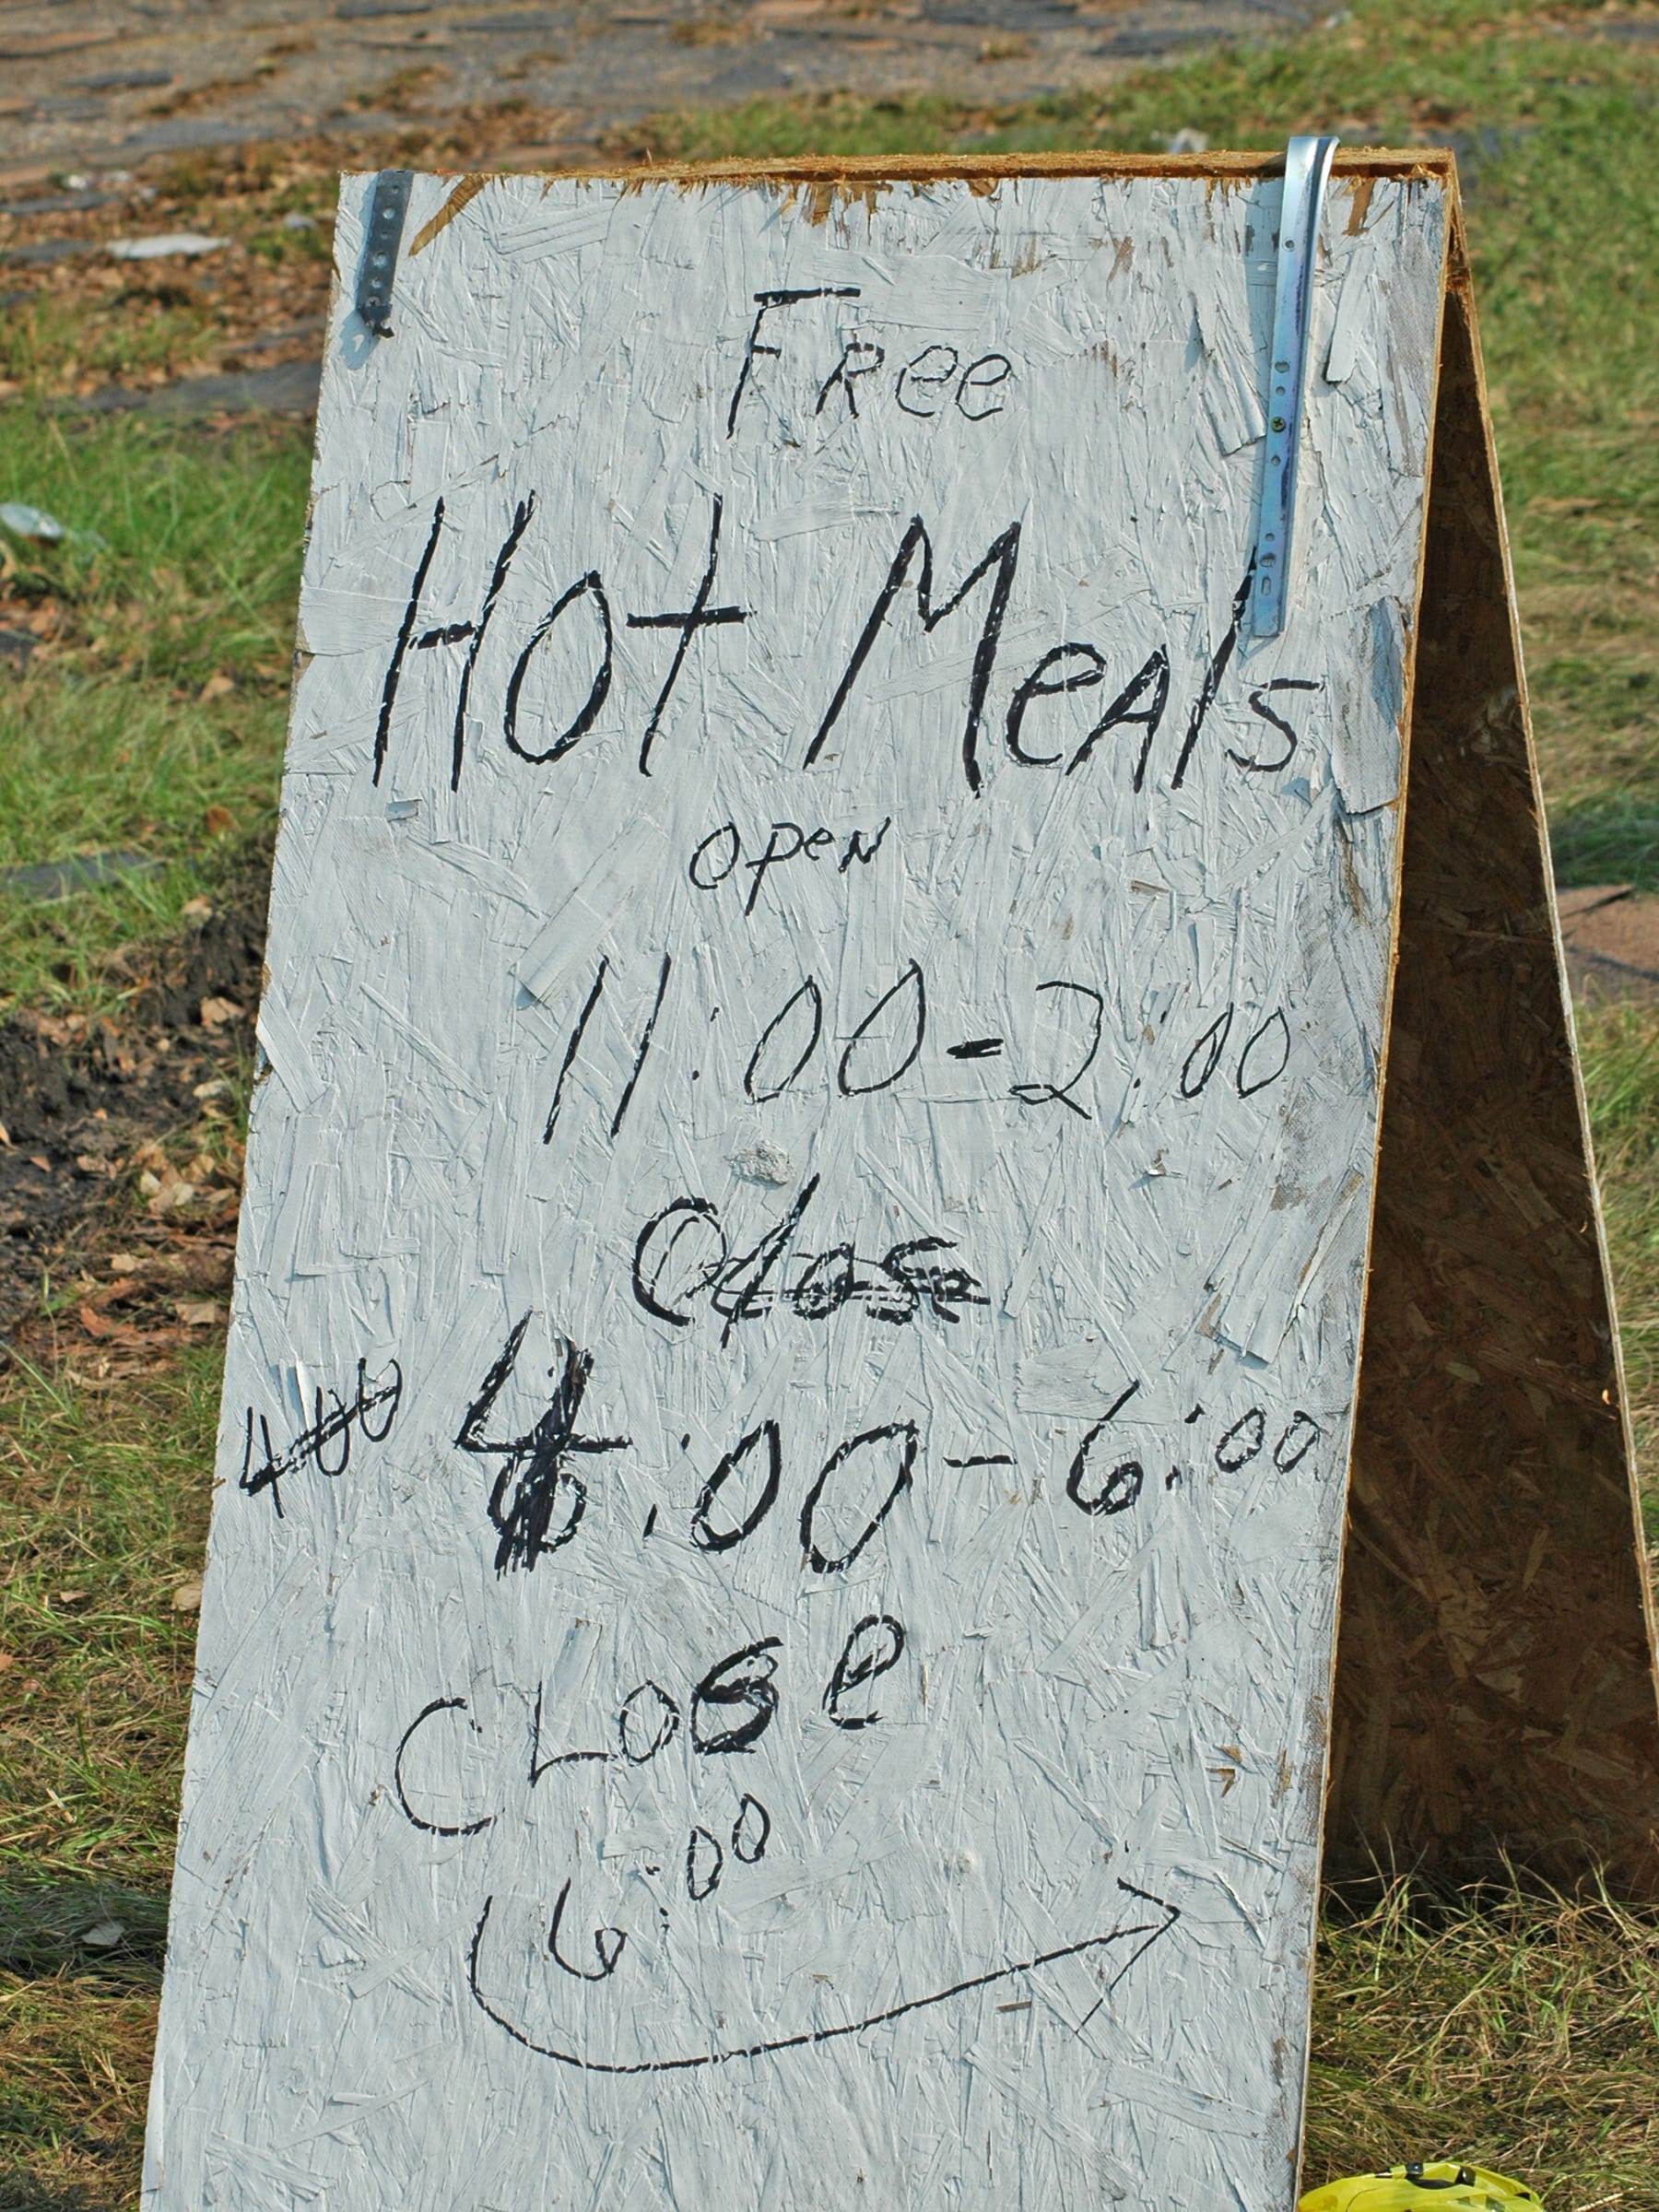 Free
Hot Meals
open
11:00-2:00
Close
400 4:00-6:00
CLOSE
6:00